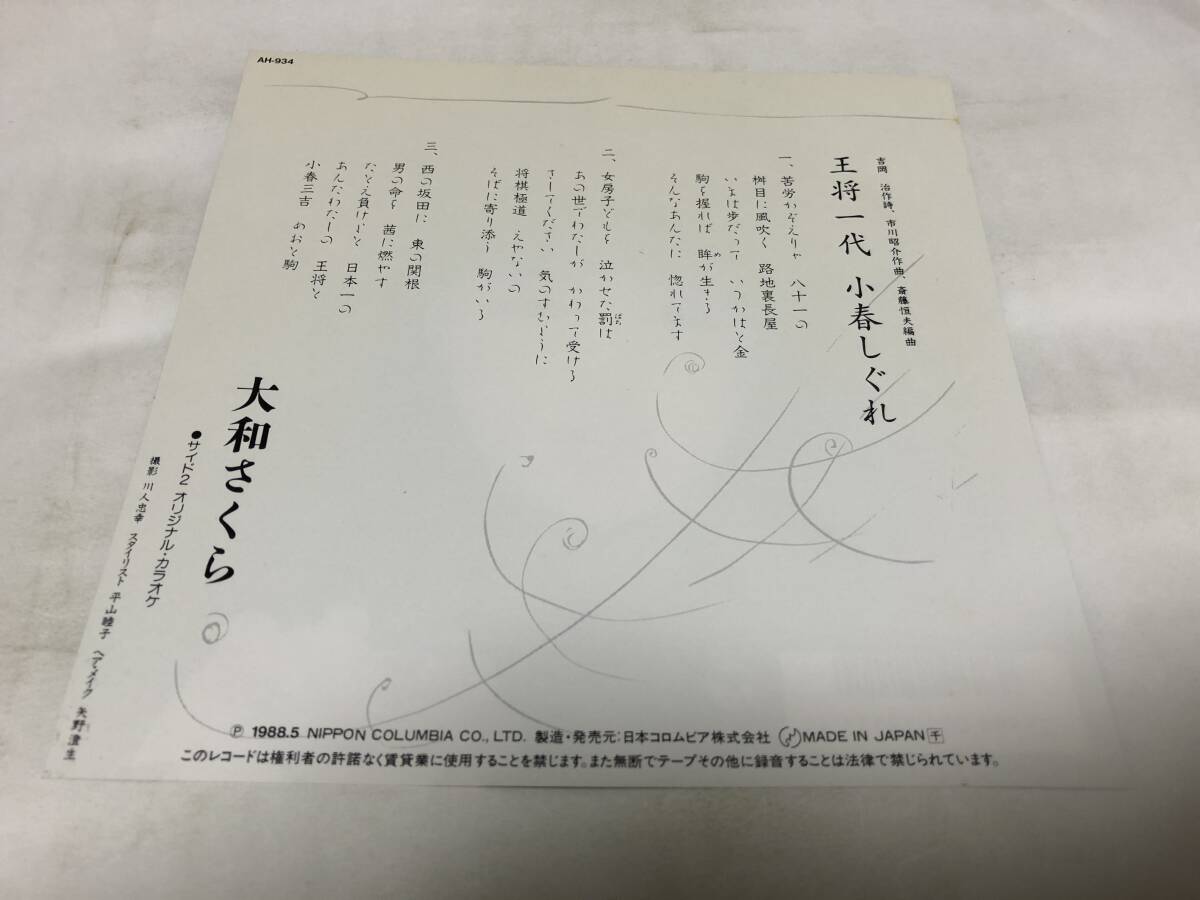 AH-934
吉岡 治作詩、市川昭介作曲、斎藤恒夫編曲
王将一代 小春しぐれ
一、苦労かぞえりゃ 八十一の
桝目に風吹く 路地裏長屋
いまは歩だって いつかはと金
駒を握れば 眸が生きる
め
そんなあんたに 惚れてます
二、女房子どもを 泣かせた罰は
ばち
あの世でわたしが かわって受ける
さしてください 気のすむように
将棋極道 えやないの
そばに寄り添う 駒がいる
三、西の坂田に 東の関根
男の命を 茜に燃やす
たとえ負けよと 日本一の
あんたわたしの 王将と
小春三吉 めおと駒
大和さくら
●サイド2 オリジナル・カラオケ
撮影 川人忠幸 スタイリスト 平山睦子 ヘア・メイク 矢野澄生
Ⓟ 1988.5 NIPPON COLUMBIA CO., LTD. 製造・発売元:日本コロムビア株式会社 MADE IN JAPAN 千
このレコードは権利者の許諾なく賃貸業に使用することを禁じます。また無断でテープその他に録音することは法律で禁じられています。